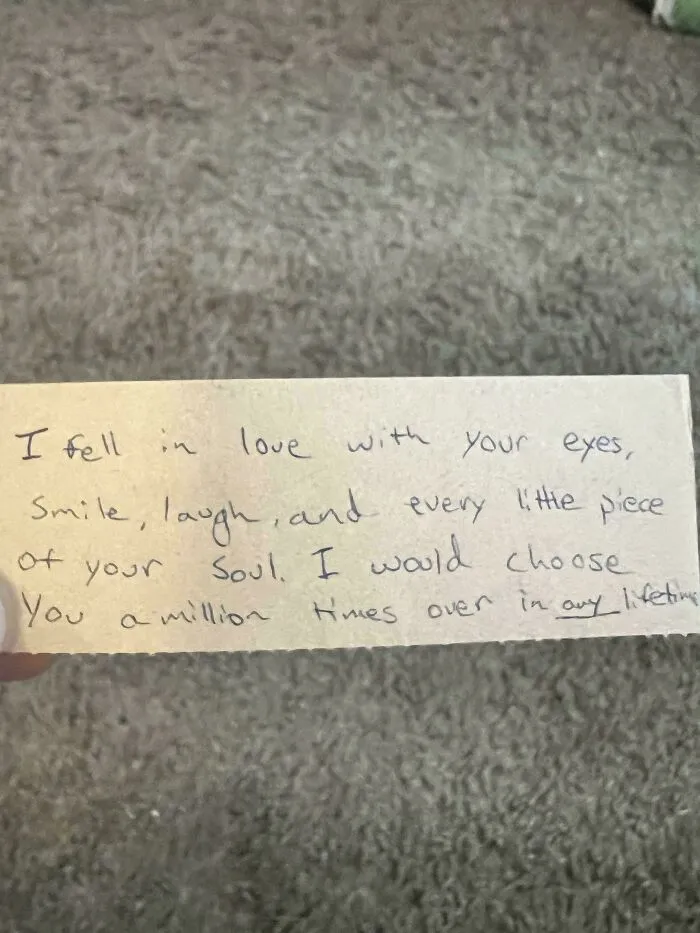 I fell in love with your eyes,
Smile, laugh, and every little piece
of your Soul. I would choose
You a million times over in any lifetime